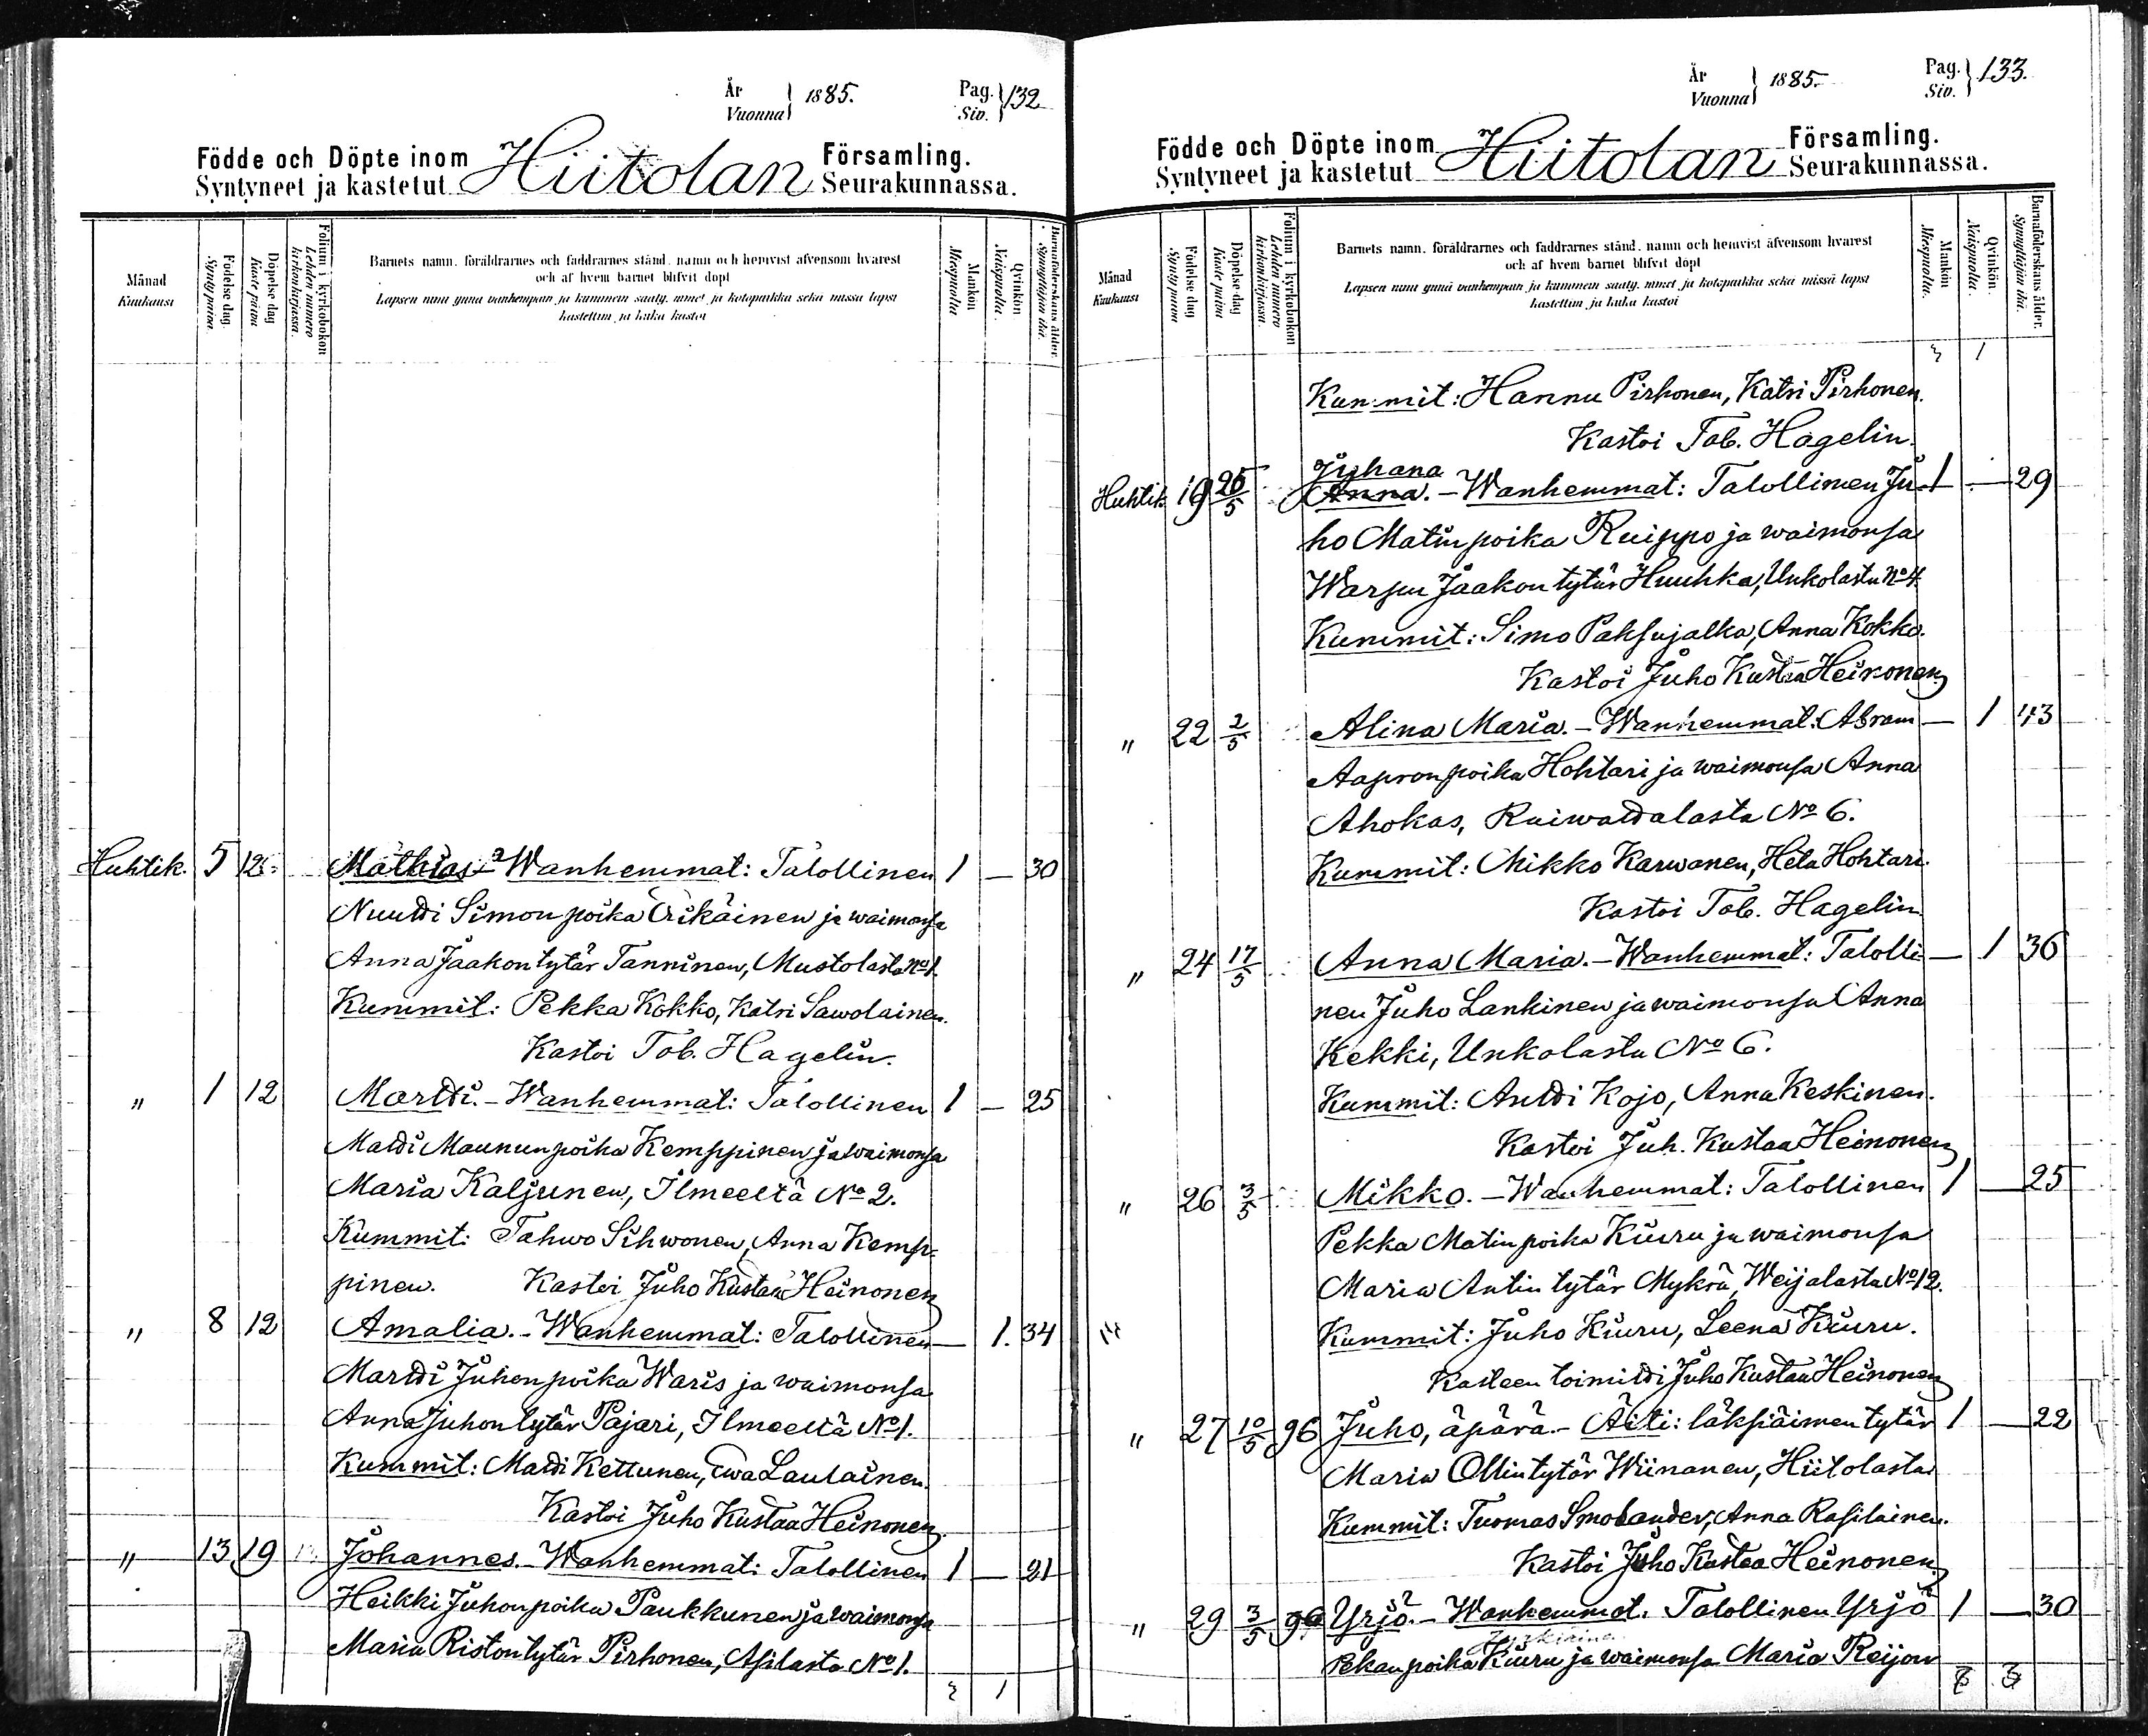 År
Vuonna } 1885.
Pag.
Siv. } 132
Födde och Döpte inom Hiitolan Församling.
Syntyneet ja kastetut Seurakunnassa.
Månad
Kuukausi
Födelse dag
Synty päivä.
Döpelse dag
Kaste päivä
Folium i kyrkoboken
Lehden numero kirkonkirjassa.
Barnets namn, föräldrarnes och faddrarnes stånd, namn och hemvist äfvensom hvarest
och af hvem barnet blifvit döpt
Lapsen nimi ynnä vanhempain ja kummein sääty, nimet ja kotopaikka sekä missä lapsi
kastettim ja kuka kastoi
Mankön
Miespuolia
Qvinkön
Naispuolia.
Barnaföderskans ålder.
Synnyttäjän ikä.
Huhtik. 5 12 Mathias - Wanhemmat: Talollinen 1 — 30
Nuutti Simon poika Äikäinen ja waimonsa
Anna Jaakontytär Tanninen, Mustolasta No 1.
Kummit: Pekka Kokko, Katri Sawolainen.
Kastoi Tob. Hagelin.
" 1 12 Martti. - Wanhemmat: Talollinen 1 — 25
Matti Maununpoika Kemppinen ja waimonsa
Maria Kaljunen, Ilmeeltä No 2.
Kummit: Tahwo Sihwonen, Anna Kemp-
pinen. Kastoi Juho Kustaa Heinonen
" 8 12 Amalia. - Wanhemmat: Talollinen — 1. 34
Martti Juhonpoika Waris ja waimonsa
Anna Juhontytär Pajari, Ilmeeltä No 1.
Kummit: Matti Kettunen, Ewa Laulainen.
Kastoi Juho Kustaa Heinonen.
" 13 19 Johannes. - Wanhemmat: Talollinen 1 — 21
Heikki Juhonpoika Paukkunen ja waimonsa
Maria Ristontytär Pirhonen, Asilasta No 1.
3 1
År
Vuonna } 1885.
Pag.
Siv. } 133.
Födde och Döpte inom Hiitolan Församling.
Syntyneet ja kastetut Seurakunnassa.
Månad
Kuukausi
Födelse dag
Synty päivä
Döpelse dag
Kaste päivä
Folium i kyrkoboken
Lehden numero kirkonkirjassa.
Barnets namn, föräldrarnes och faddrarnes stånd, namn och hemvist äfvensom hvarest
och af hvem barnet blifvit döpt
Lapsen nimi ynnä vanhempain ja kummein sääty, nimet ja kotopaikka sekä missä lapsi
kastettim ja kuka kastoi
Mankön
Miespuolia.
Qvinkön
Naispuolia.
Barnaföderskans ålder.
Synnyttäjän ikä.
3 1
Kummit: Hannu Pirhonen, Katri Pirhonen.
Kastoi Tob. Hagelin.
Juhana
Huhtik. 19 26/5 Anna. - Wanhemmat: Talollinen Ju- 1 — 29
ho Matinpoika Ruippo ja waimonsa
Warpu Jaakontytär Huuhka, Unkolasta No 4.
Kummit: Simo Paksujalka, Anna Kokko.
Kastoi Juho Kustaa Heinonen.
" 22 2/5 Alina Maria. - Wanhemmat: Abram — 1 43
Aapronpoika Hohtari ja waimonsa Anna
Ahokas, Raiwattalasta No 6.
Kummit: Mikko Karwanen, Hela Hohtari.
Kastoi Tob. Hagelin.
" 24 17/5 Anna Maria. - Wanhemmat: Talolli- — 1 36
nen Juho Lankinen ja waimonsa Anna
Kekki, Unkolasta No 6.
Kummit: Antti Kojo, Anna Keskinen.
Kastoi Juh. Kustaa Heinonen
" 26 3/5 Mikko. - Wanhemmat: Talollinen 1 — 25
Pekka Matinpoika Kiuru ja waimonsa
Maria Antintytär Mykrä, Weijalasta No 12.
Kummit: Juho Kiuru, Leena Kiuru.
Kasteen toimitti Juho Kustaa Heinonen
" 27 10/5 96 Juho, äpärä. - Äiti: läksiäimen tytär 1 — 22
Maria Ollintytär Wiinanen, Hiitolasta
Kummit: Tuomas Smolander, Anna Rasilainen.
Kastoi Juho Kustaa Heinonen.
" 29 3/5 99 Yrjö. - Wanhemmat: Talollinen Yrjö 1 — 30
Pekanpoika Kiuru ja waimonsa Maria Reijon